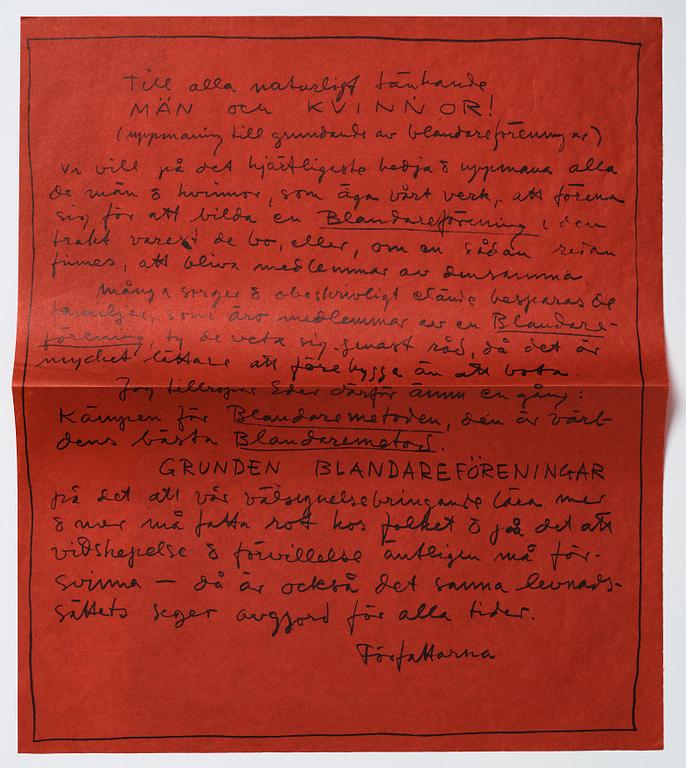 Till alla naturligt tänkande
MÄN och KVINNOR!
(uppmaning till grundande av blandareföreningar)
Vi vill på det hjärtligaste bedja & uppmana alla
de män & kvinnor, som äga vårt verk, att förena
sig för att bilda en Blandareförening i den
trakt varest de bo, eller, om en sådan redan
finnes, att bliva medlemmar av densamma
många sorger & obeskrivligt elände besparas de
familjer, som äro medlemmar av en Blandare-
förening, ty de veta sig genast råd, då det är
mycket lättare att förebygga än att bota.
Jag tillropar Eder därför ännu en gång:
Kämpen för Blandaremetoden, den är värl-
dens bästa Blandaremetod.
GRUNDEN BLANDAREFÖRENINGAR
på det att vår välsignelsebringande lära mer
& mer må fatta rot hos folket & på det att
vidskepelse & förvillelse äntligen må för-
svinna — då är också det sanna levnads-
sättets seger avgjord för alla tider.
Författarna